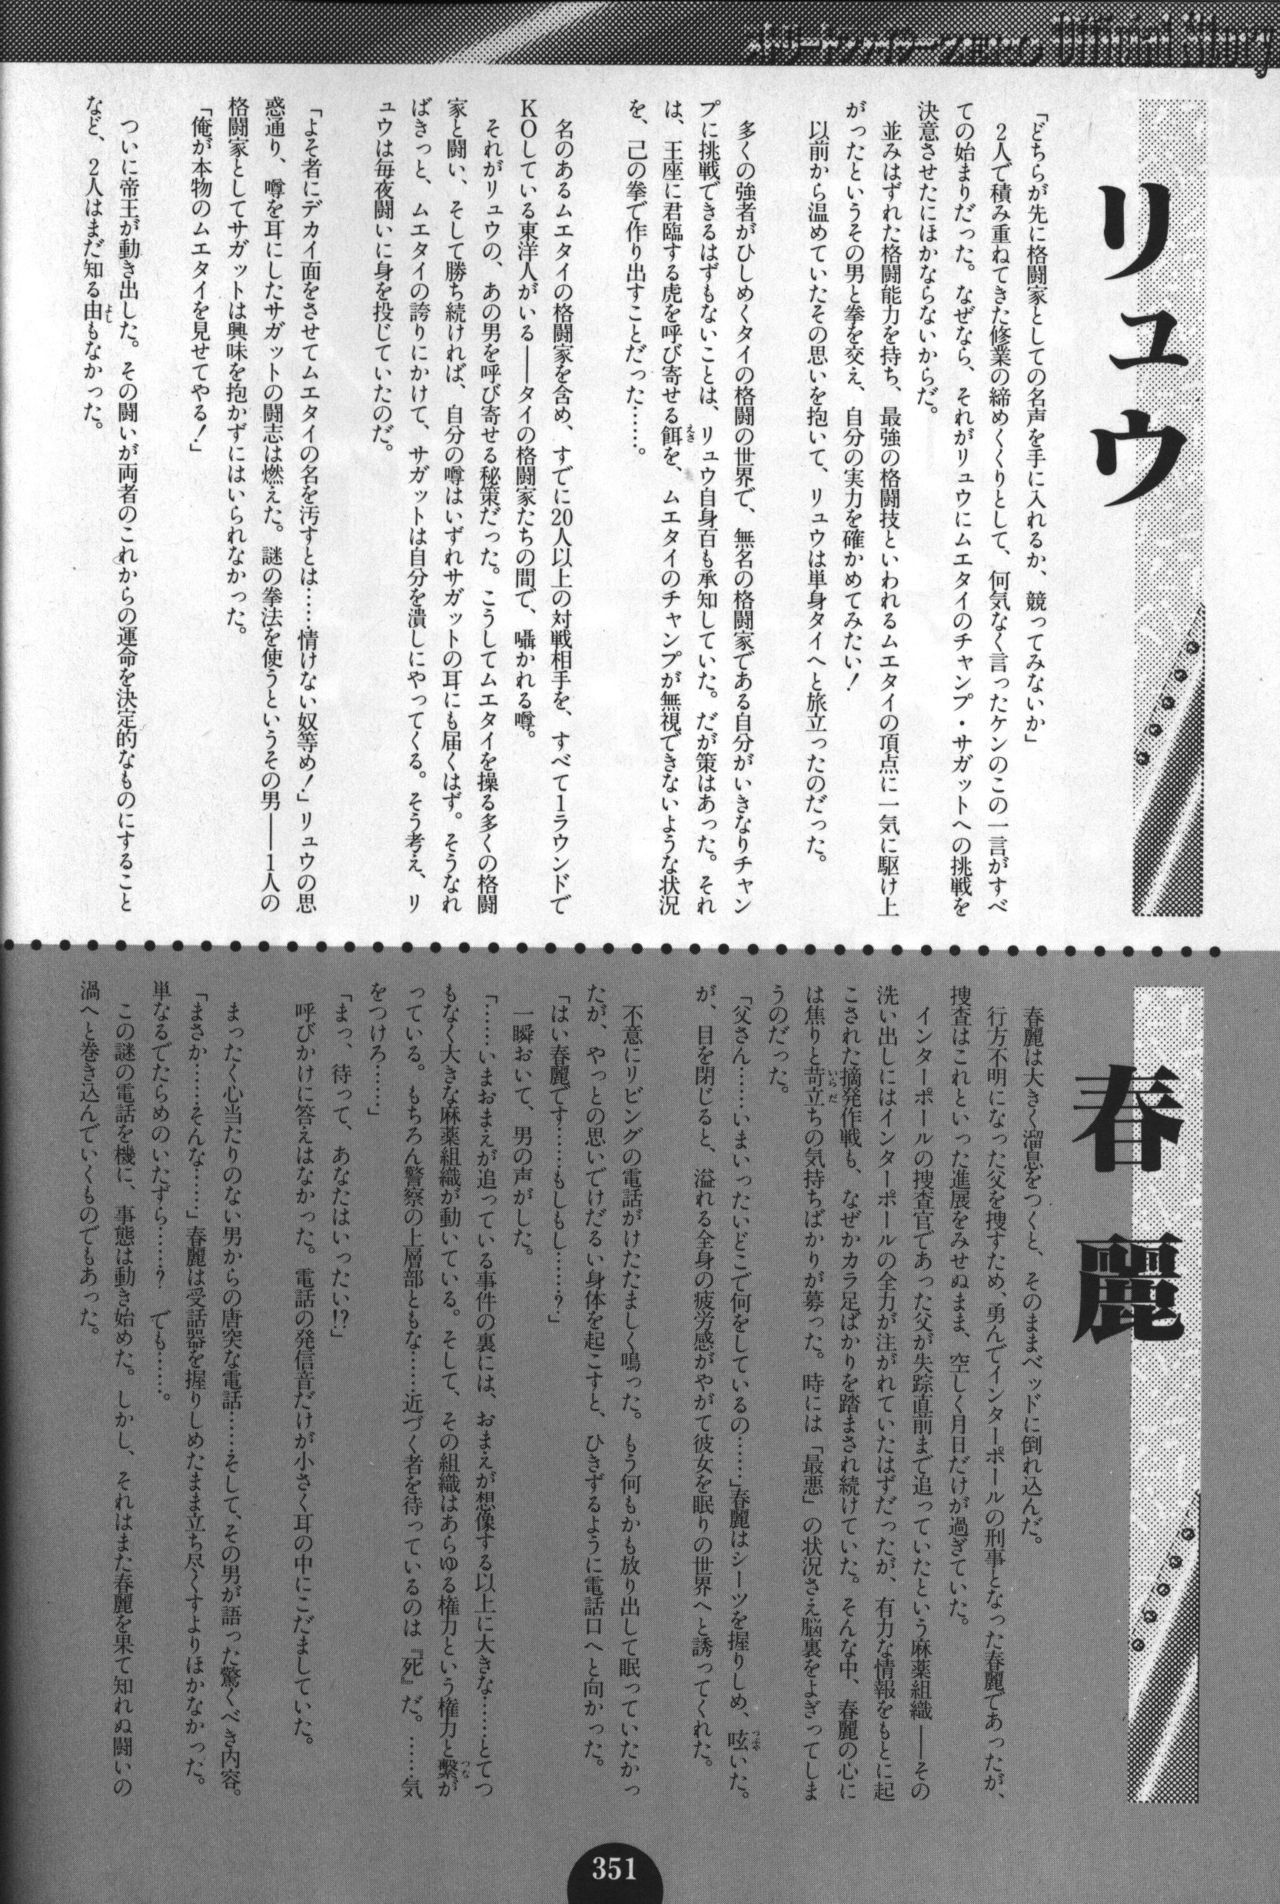 Official Story
リュウ
「どちらが先に格闘家としての名声を手に入れるか、競ってみないか」
2人で積み重ねてきた修業の締めくくりとして、何気なく言ったケンのこの一言がすべ
ての始まりだった。なぜなら、それがリュウにムエタイのチャンプ・サガットへの挑戦を
決意させたにほかならないからだ。
並みはずれた格闘能力を持ち、最強の格闘技といわれるムエタイの頂点に一気に駆け上
がったというその男と拳を交え、自分の実力を確かめてみたい！
以前から温めていたその思いを抱いて、リュウは単身タイへと旅立ったのだった。
多くの強者がひしめくタイの格闘の世界で、無名の格闘家である自分がいきなりチャン
プに挑戦できるはずもないことは、リュウ自身百も承知していた。だが策はあった。それ
は、王座に君臨する虎を呼び寄せる餌えさを、ムエタイのチャンプが無視できないような状況
を、己の拳で作り出すことだった……。
名のあるムエタイの格闘家を含め、すでに20人以上の対戦相手を、すべて1ラウンドで
KOしている東洋人がいる――タイの格闘家たちの間で、囁かれる噂。
それがリュウの、あの男を呼び寄せる秘策だった。こうしてムエタイを操る多くの格闘
家と闘い、そして勝ち続ければ、自分の噂はいずれサガットの耳にも届くはず。そうなれ
ばきっと、ムエタイの誇りにかけて、サガットは自分を潰しにやってくる。そう考え、リ
ュウは毎夜闘いに身を投じていたのだ。
「よそ者にデカイ面をさせてムエタイの名を汚すとは……情けない奴等め！」リュウの思
惑通り、噂を耳にしたサガットの闘志は燃えた。謎の拳法を使うというその男――1人の
格闘家としてサガットは興味を抱かずにはいられなかった。
「俺が本物のムエタイを見せてやる！」
ついに帝王が動き出した。その闘いが両者のこれからの運命を決定的なものにすること
など、2人はまだ知る由よしもなかった。
春麗
春麗は大きく溜息をつくと、そのままベッドに倒れ込んだ。
行方不明になった父を捜すため、勇んでインターポールの刑事となった春麗であったが、
捜査はこれといった進展をみせぬまま、空しく月日だけが過ぎていた。
インターポールの捜査官であった父が失踪直前まで追っていたという麻薬組織――その
洗い出しにはインターポールの全力が注がれていたはずだったが、有力な情報をもとに起
こされた摘発作戦も、なぜかカラ足ばかりを踏まされ続けていた。そんな中、春麗の心に
は焦りと苛立いらだちの気持ちばかりが募った。時には「最悪」の状況さえ脳裏をよぎってしま
うのだった。
「父さん……いまいったいどこで何をしているの……」春麗はシーツを握りしめ、呟つぶやいた。
が、目を閉じると、溢れる全身の疲労感がやがて彼女を眠りの世界へと誘ってくれた。
不意にリビングの電話がけたたましく鳴った。もう何もかも放り出して眠っていたかっ
たが、やっとの思いでけだるい身体を起こすと、ひきずるように電話口へと向かった。
「はい春麗です……もしもし……？」
一瞬おいて、男の声がした。
「……いまおまえが追っている事件の裏には、おまえが想像する以上に大きな……とてつ
もなく大きな麻薬組織が動いている。そして、その組織はあらゆる権力という権力と繫つなが
っている。もちろん警察の上層部ともな……近づく者を待っているのは『死』だ。……気
をつけろ……」
「まっ、待って、あなたはいったい!?」
呼びかけに答えはなかった。電話の発信音だけが小さく耳の中にこだましていた。
まったく心当たりのない男からの唐突な電話……そして、その男が語った驚くべき内容。
「まさか……そんな……」春麗は受話器を握りしめたまま立ち尽くすよりほかなかった。
単なるでたらめのいたずら……？　でも……。
この謎の電話を機に、事態は動き始めた。しかし、それはまた春麗を果て知れぬ闘いの
渦へと巻き込んでいくものでもあった。
351